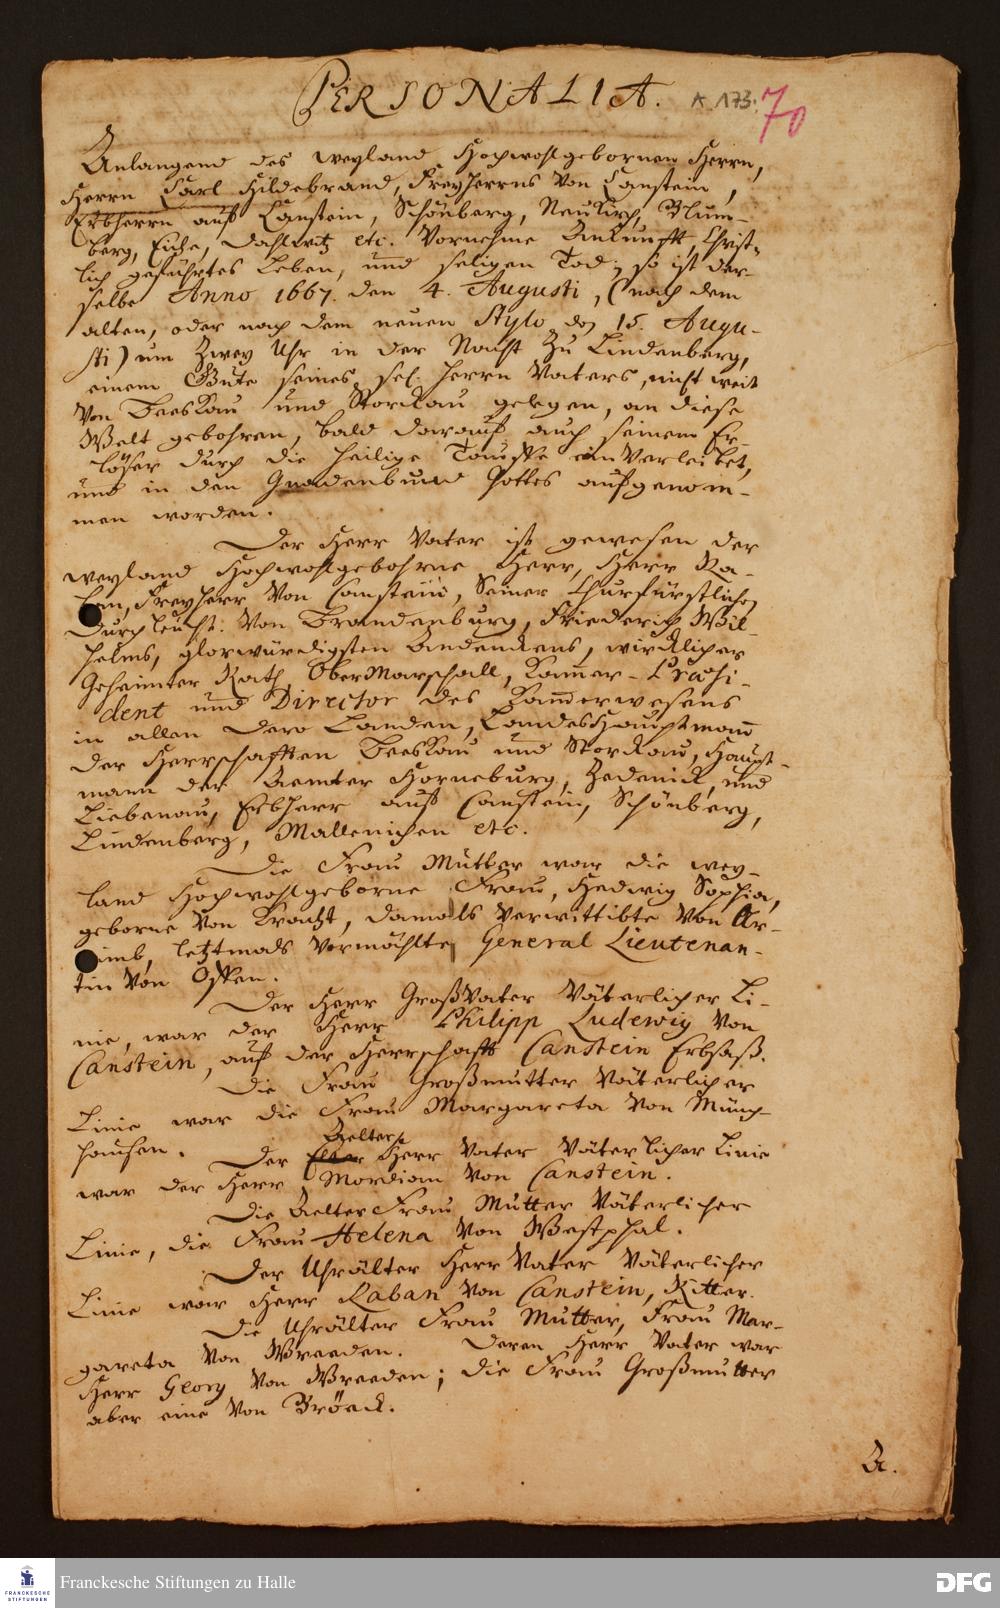 PERSONALIA. A 173: 70
Anlangend des weyland Hochwohlgebornen Herrn,
Herrn Carl Hildebrand, Freyherrns von Canstein,
Erbherrn auf Canstein, Schönberg, Neukirch, Blum-
berg, Eiche, Dahlwitz etc. Vornehme Ankunfft, Christ-
lich geführtes Leben, und seligen Tod; so ist der-
selbe Anno 1667. den 4. Augusti, (nach dem
alten, oder nach dem neuen Stylo den 15. Augu-
sti) um Zwey Uhr in der Nacht Zu Lindenberg,
einem Gute seines sel. Herrn Vaters, nicht weit
von Beeskau und Storckau gelegen, an diese
Welt gebohren, bald darauf auch seinem Er-
löser durch die heilige Tauffe einverleibet,
und in den Gnadenbund Gottes aufgenom-
men worden.
Der Herr Vater ist gewesen der
weyland Hochwohlgebohrne Herr, Herr Ra-
ban, Freyherr von Canstein, Seiner Churfürstlichen
Durchleucht: von Brandenburg, Friederich Wil-
helms, glorwürdigsten Andenckens, wircklicher
Geheimter Rath, Ober Marschall, Kammer-Præsi-
dent und Director des Kammerwesens
in allen Dero Landen, Landes Hauptmann
der Herrschafften Beeskau und Storckau, Haupt-
mann der Aemter Horneburg, Zedenick, und
Liebenau, Erbherr auf Canstein, Schönberg,
Lindenberg, Mallenichen etc.
Die Frau Mutter war die wey-
land Hochwohlgeborne Frau, Hedwig Sophia,
geborne von Kracht, damals verwittibte von Ar-
nimb, letztmals vermählte General Lieutenan-
tin von Osten.
Der Herr GroßVater Väterlicher Li-
nie, war der Herr Philipp Ludewig von
Canstein, auf der Herrschafft Canstein Erbsaß.
Die Frau Großmutter Väterlicher
Linie war die Frau Margareta von Münch-
hausen.
Aelter
Der Herr Vater Väterlicher Linie
war der Herr Mordian von Canstein.
Die Aelter Frau Mutter Väterlicher
Linie, die Frau Helena von Westphal.
Der Uhrälter Herr Vater Väterlicher
Linie war Herr Raban von Canstein, Ritter.
Die Uhrälter Frau Mutter, Frau Mar-
gareta von Wreeden. Deren Herr Vater war
Herr Georg von Wreeden; die Frau Großmutter
aber eine von Bröeck.
A.
Franckesche Stiftungen zu Halle
FRANCKESCHE STIFTUNGEN
DFG